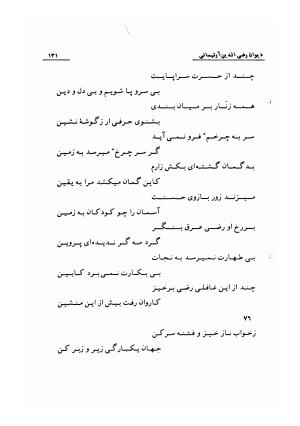 دیوان رضی الدین آرتیمانی
۱۳۱
چند از حسرت سراپایت
بی سر و پا شویم و بی دل و دین
همه زنّار بر میان بندی
بشنوی حرفی ار زگوشهٔ نشین
سر به چرخم* فرو نمی آید
گر سر چرخ* میرسد به زمین
بد گمان گشته‌ای بکش زارم
کاین گمان میکشد مرا به یقین
میزند زور بازوی حسنت
آسمان را چو کودکان به زمین
بررخ او رضی عرق بنگر
گرد مه گر ندیده‌ای پروین
بی طهارت نمیرسد به نجات
بی بکارت نمی برد کابین
چند از این غافلی رضی برخیز
کاروان رفت بیش از این منشین
۷۶
زخواب ناز خیز و فتنه سرکن
جهان یکبارگی زیر و زبر کن